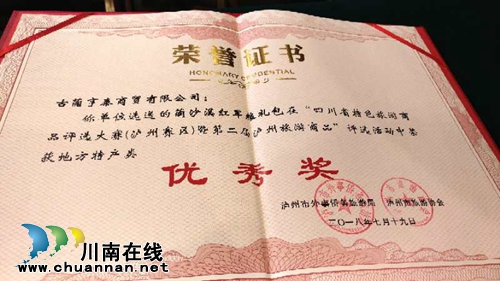 荣誉证书
HONORARY CREDENTIAL
古蔺亨泰商贸有限公司:
你单位选送的蔺沙溪红军粮礼包在“四川省特色旅游商
品评选大赛(泸州赛区)暨第二届泸州旅游商品”评选活动中荣
获地方特产类
优秀奖
泸州市外事侨务旅游局 泸州市旅游协会
二〇一八年七月十九日
川南在线
www.chuannan.net